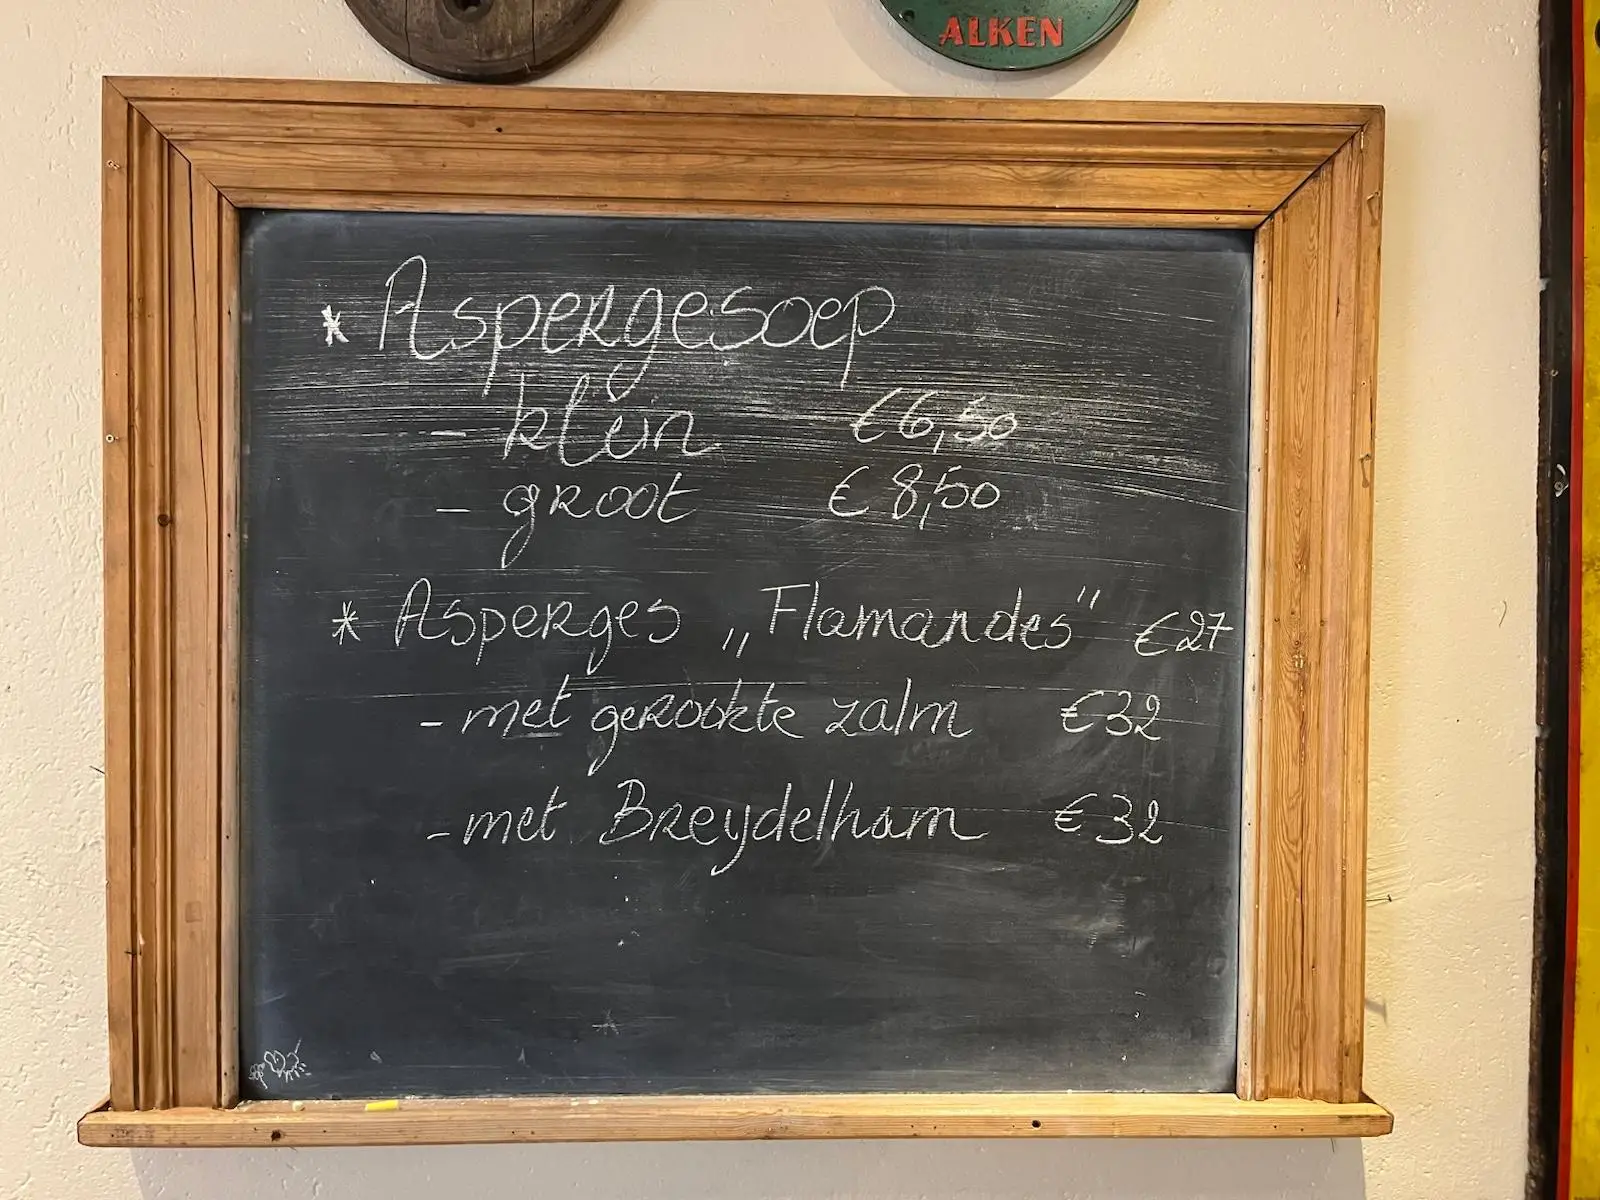 ALKEN
* Aspergesoep
- klein €6,50
- groot €8,50
* Asperges „Flamandes" €27
- met gerookte zalm €32
- met Breydelham €32